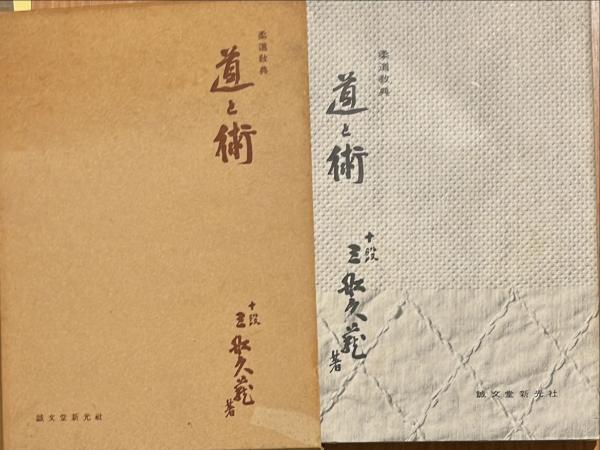 柔道教典
道と術
十段
三船久蔵
著
誠文堂新光社
柔道教典
道と術
十段
三船久蔵
著
誠文堂新光社